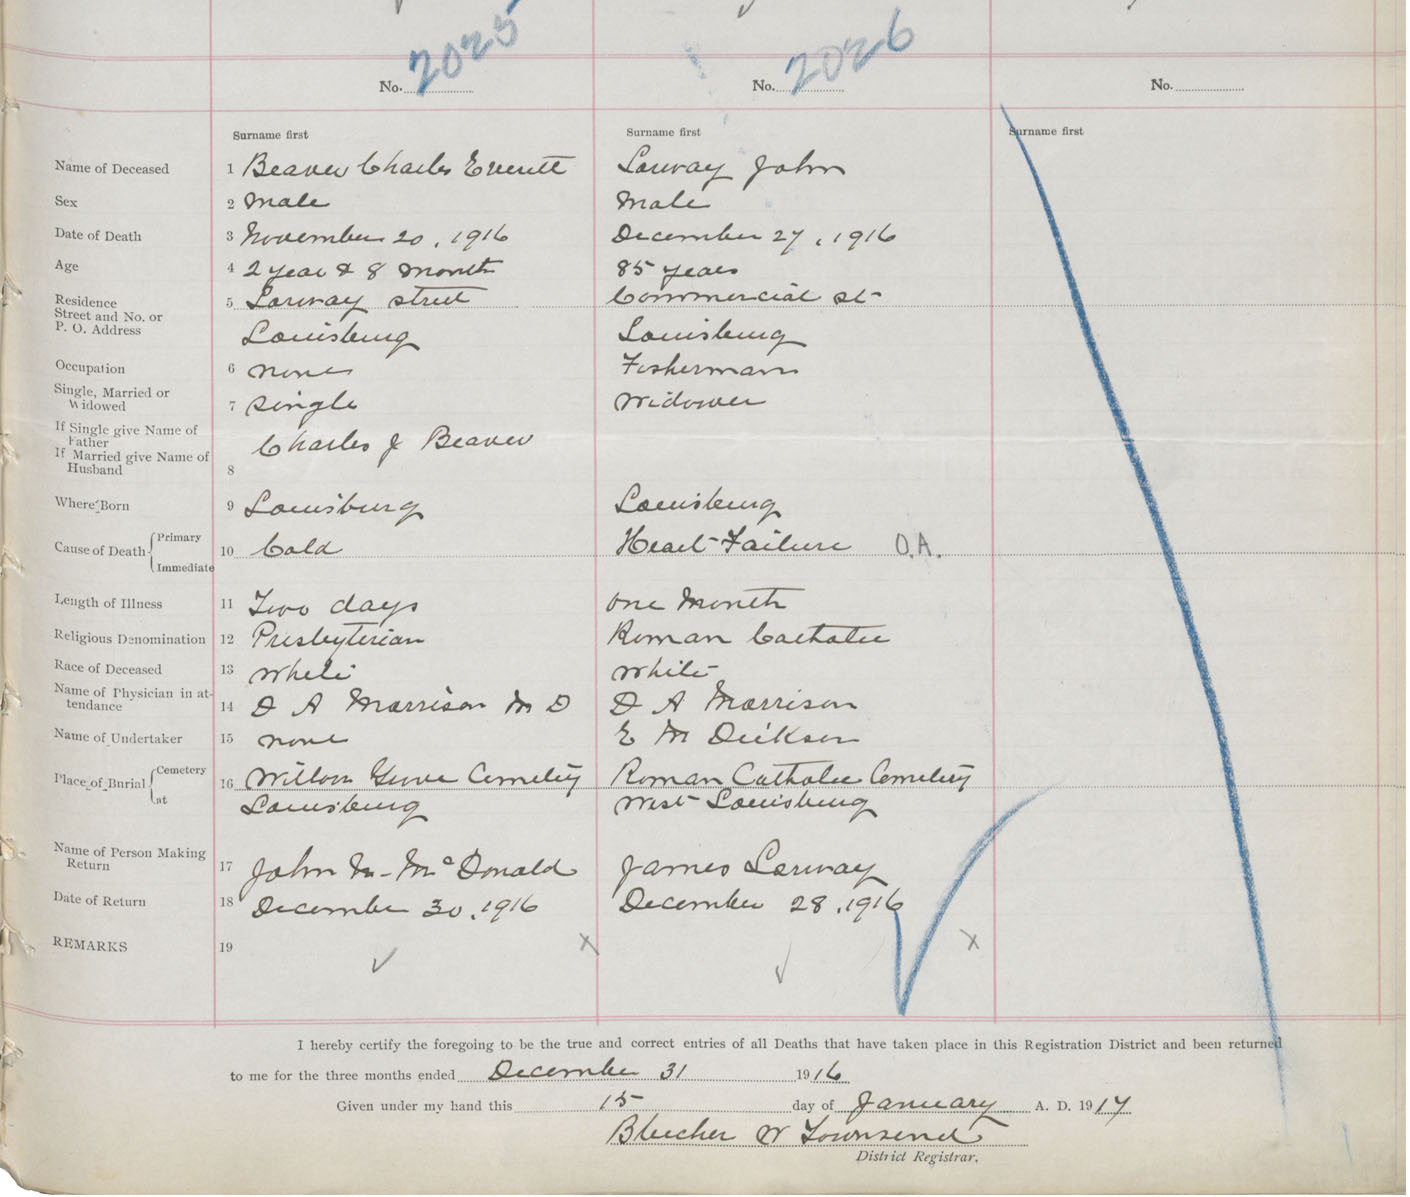 2025 2026
No. No. No.
Surname first Surname first Surname first
Name of Deceased 1 Beaver Charles Everett Lorway John
Sex 2 Male Male
Date of Death 3 November 20, 1916 December 27, 1916
Age 4 2 year & 8 month 85 years
Residence 5 Lorway street Commercial st
Street and No. or
P. O. Address Louisburg Louisburg
Occupation 6 none Fisherman
Single, Married or
Widowed 7 Single Widower
If Single give Name of
Father Charles J Beaver
If Married give Name of
Husband 8
Where Born 9 Louisburg Louisburg
Cause of Death Primary
Immediate 10 Cold Heart Failure O.A.
Length of Illness 11 Two days One Month
Religious Denomination 12 Presbyterian Roman Catholic
Race of Deceased 13 White White
Name of Physician in at-
tendance 14 D A Morrison M D D A Morrison
Name of Undertaker 15 none E M Dickson
Place of Burial Cemetery 16 Willow Grove Cemetery Roman Catholic Cemetery
at Louisburg West Louisburg
Name of Person Making
Return 17 John M. McDonald James Lorway
Date of Return 18 December 30, 1916 December 28, 1916
REMARKS 19
I hereby certify the foregoing to be the true and correct entries of all Deaths that have taken place in this Registration District and been returned
to me for the three months ended December 31 1916
Given under my hand this 15 day of January A. D. 1917
Blucher W Townsend
District Registrar.